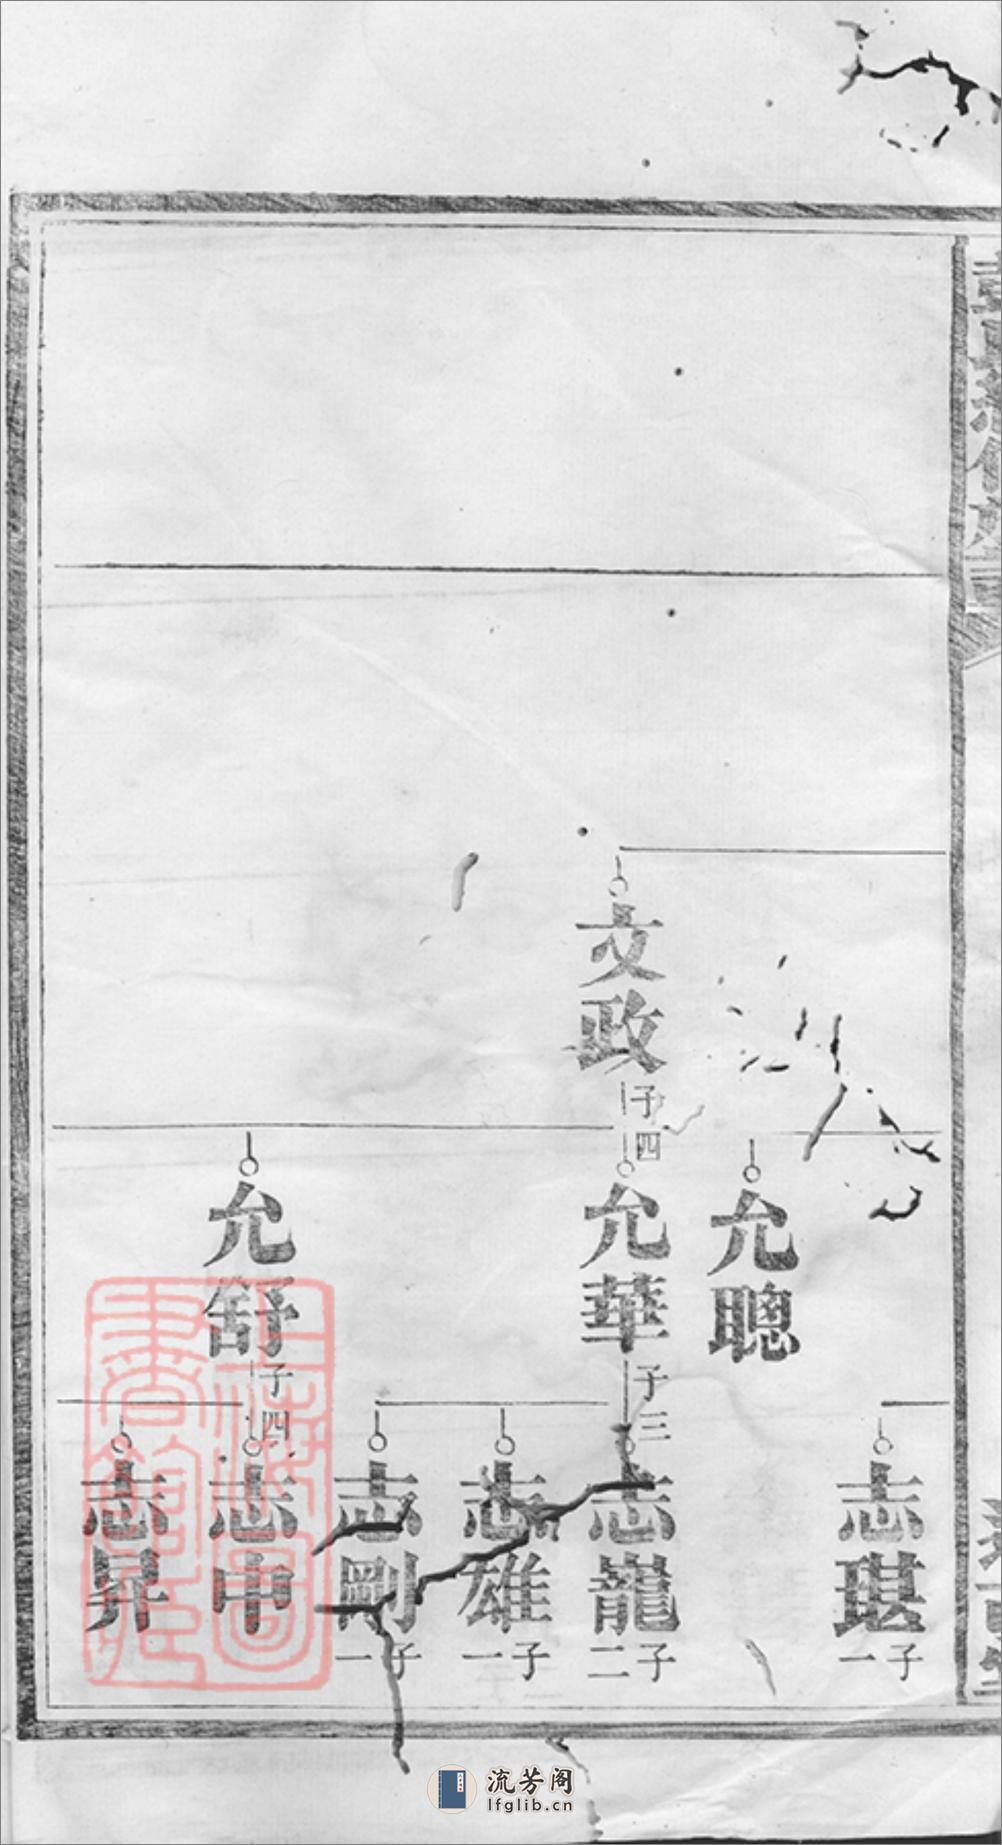 文政 子四
允聰
允華 子三
允舒 子四
志琪 子一
志巃 子二
志雄 子一
志剛 子一
志申
志昇
上海圖書館藏
流芳阁
lfglib.cn